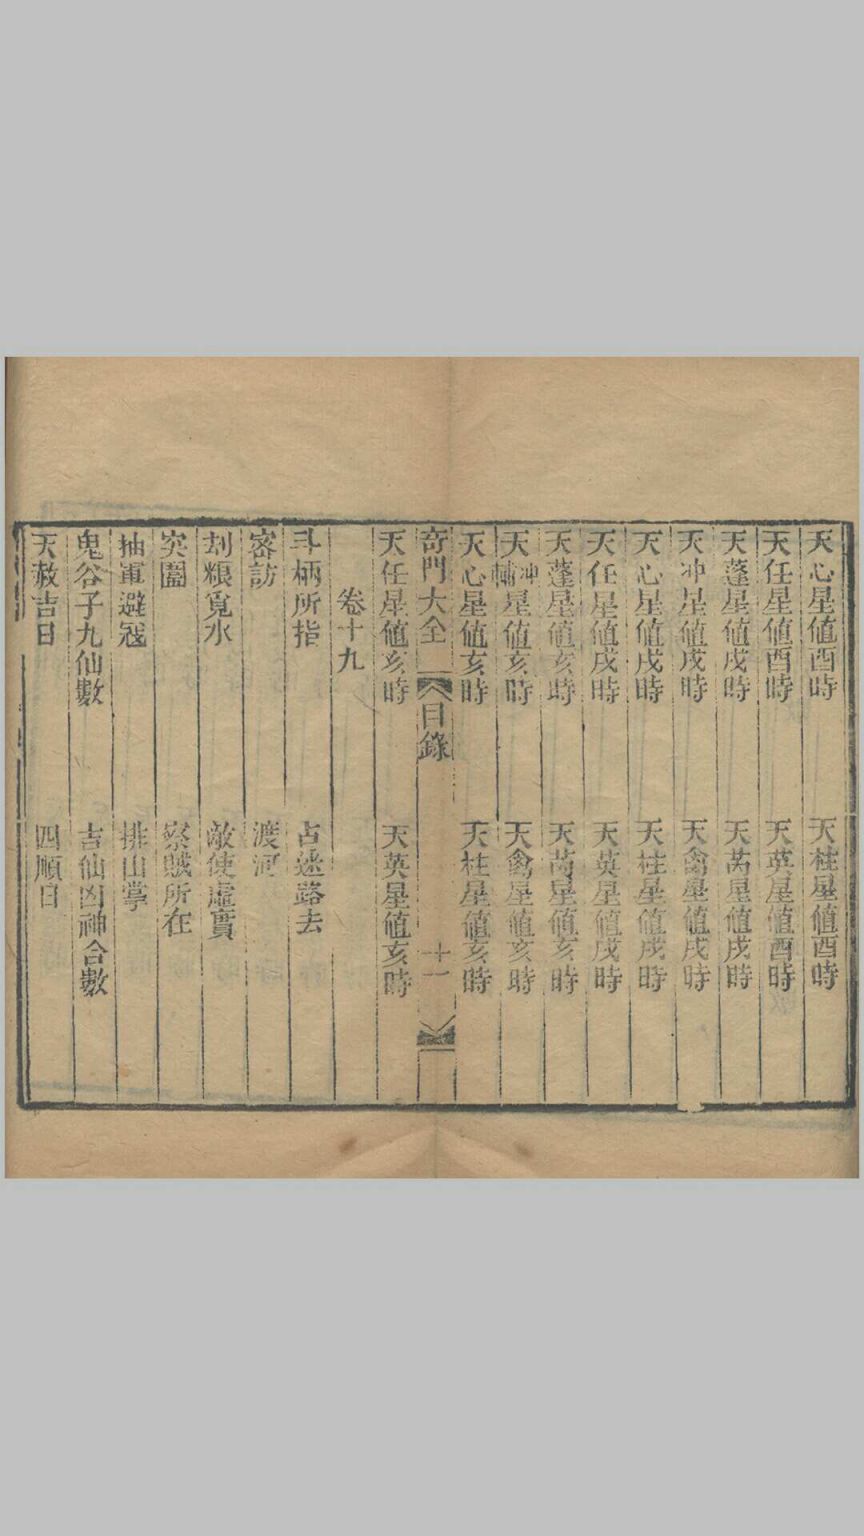 天心星値酉時　天柱星値酉時
天任星値酉時　天英星値酉時
天蓬星値戌時　天芮星値戌時
天冲星値戌時　天禽星値戌時
天心星値戌時　天柱星値戌時
天任星値戌時　天英星値戌時
天蓬星値亥時　天芮星値亥時
天冲輔星値亥時　天禽星値亥時
天心星値亥時　天柱星値亥時
奇門大全　目錄　十一
天任星値亥時　天英星値亥時
卷十九
斗柄所指　占迷路去
密訪　渡河
刦糧覓水　敵使虛實
突圍　察賊所在
抽軍避寇　排山掌
鬼谷子九仙數　吉仙凶神合數
天赦吉日　四順日